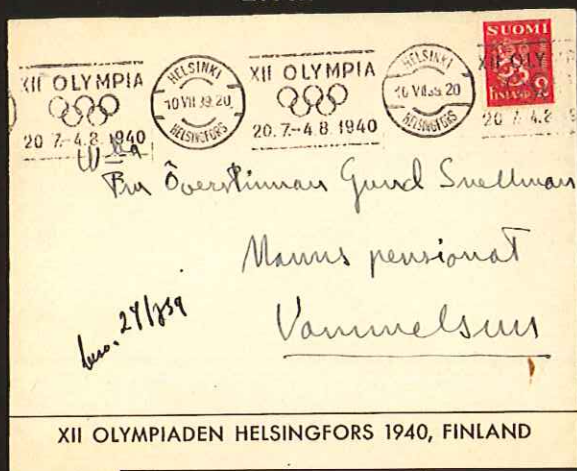 SUOMI
XII OLYMPIA
20 7.-4.8 1940
HELSINKI
10 VII 39. 20
HELSINGFORS
XII OLYMPIA
20. 7.-4. 8 1940
HELSINKI
10 VII 39. 20
HELSINGFORS
XII OLY
20 7. 4.8
Fru Överstinnan Gund Snellman
Manns pensionat
Vammelsuu
27/7 39
XII OLYMPIADEN HELSINGFORS 1940, FINLAND